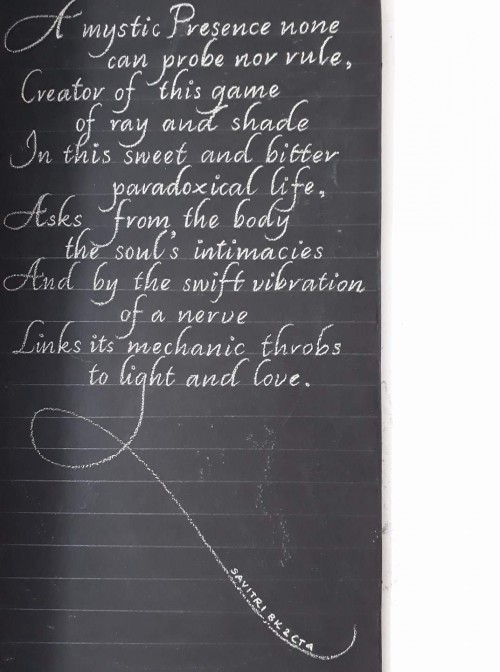 A mystic Presence none
can probe nor rule,
Creator of this game
of ray and shade
In this sweet and bitter
paradoxical life,
Asks from the body
the soul's intimacies
And by the swift vibration
of a nerve
Links its mechanic throbs
to light and love.
SAVITRI BK 2 CT 4